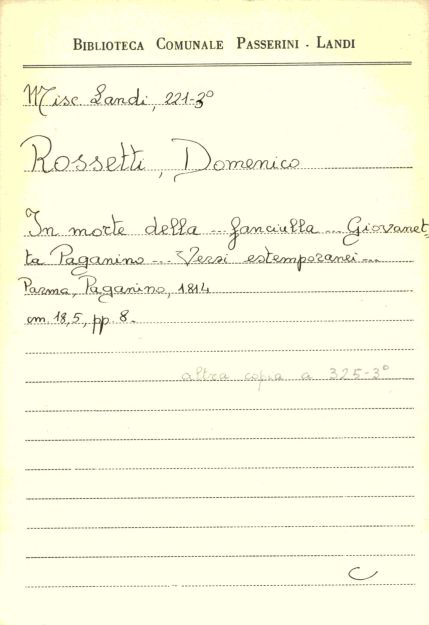 BIBLIOTECA COMUNALE PASSERINI - LANDI
Misc. Landi, 221-3°
Rossetti, Domenico
In morte della ... fanciulla ... Giovanet-
ta Paganino ... Versi estemporanei ...
Parma, Paganino, 1814
cm. 18,5, pp. 8.
altra copia a 325-3°
C